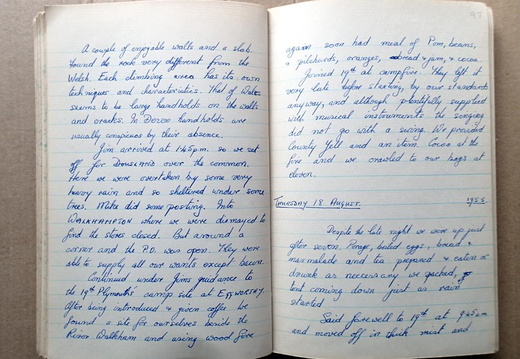 A couple of enjoyable walls and a slab.
Found the rock very different from the
Welsh. Each climbing area has its own
techniques and characteristics. That of Wales
seems to be large handholds on the walls
and cracks. In Devon handholds are
usually conspicuous by their absence.
Jim arrived at 1.45pm. so we set
off for DOUSLAND over the common.
Here we were overtaken by some very
heavy rain and so sheltered under some
trees. Mike did some posting. Into
WALKHAMPTON where we were dismayed to
find the stores closed. But around a
corner and the P.O. was open. They were
able to supply all our wants except bacon.
Continued under Jims guidance to
the 19th Plymouth's camp site at EGGWORTHY.
After being introduced & given coffee we
found a site for ourselves beside the
River Walkham and using wood fire
97
again soon had meal of Pom, beans,
& pilchards, oranges, bread & jam, & cocoa.
Joined 19th at campfire. They left it
very late before starting, by our standards
anyway, and although plentifully supplied
with musical instruments the singing
did not go with a swing. We provided
County Yell and an item. Cocoa at the
fire and we crawled to our bags at
eleven.
THURSDAY 18 AUGUST. 1955.
Despite the late night we were up just
after seven. Porage, boiled eggs, bread &
marmalade and tea prepared & eaten or
drunk as necessary we packed,
tent coming down just as rain
started
Said farewell to 19th at 9.45am
and moved off in thick mist and